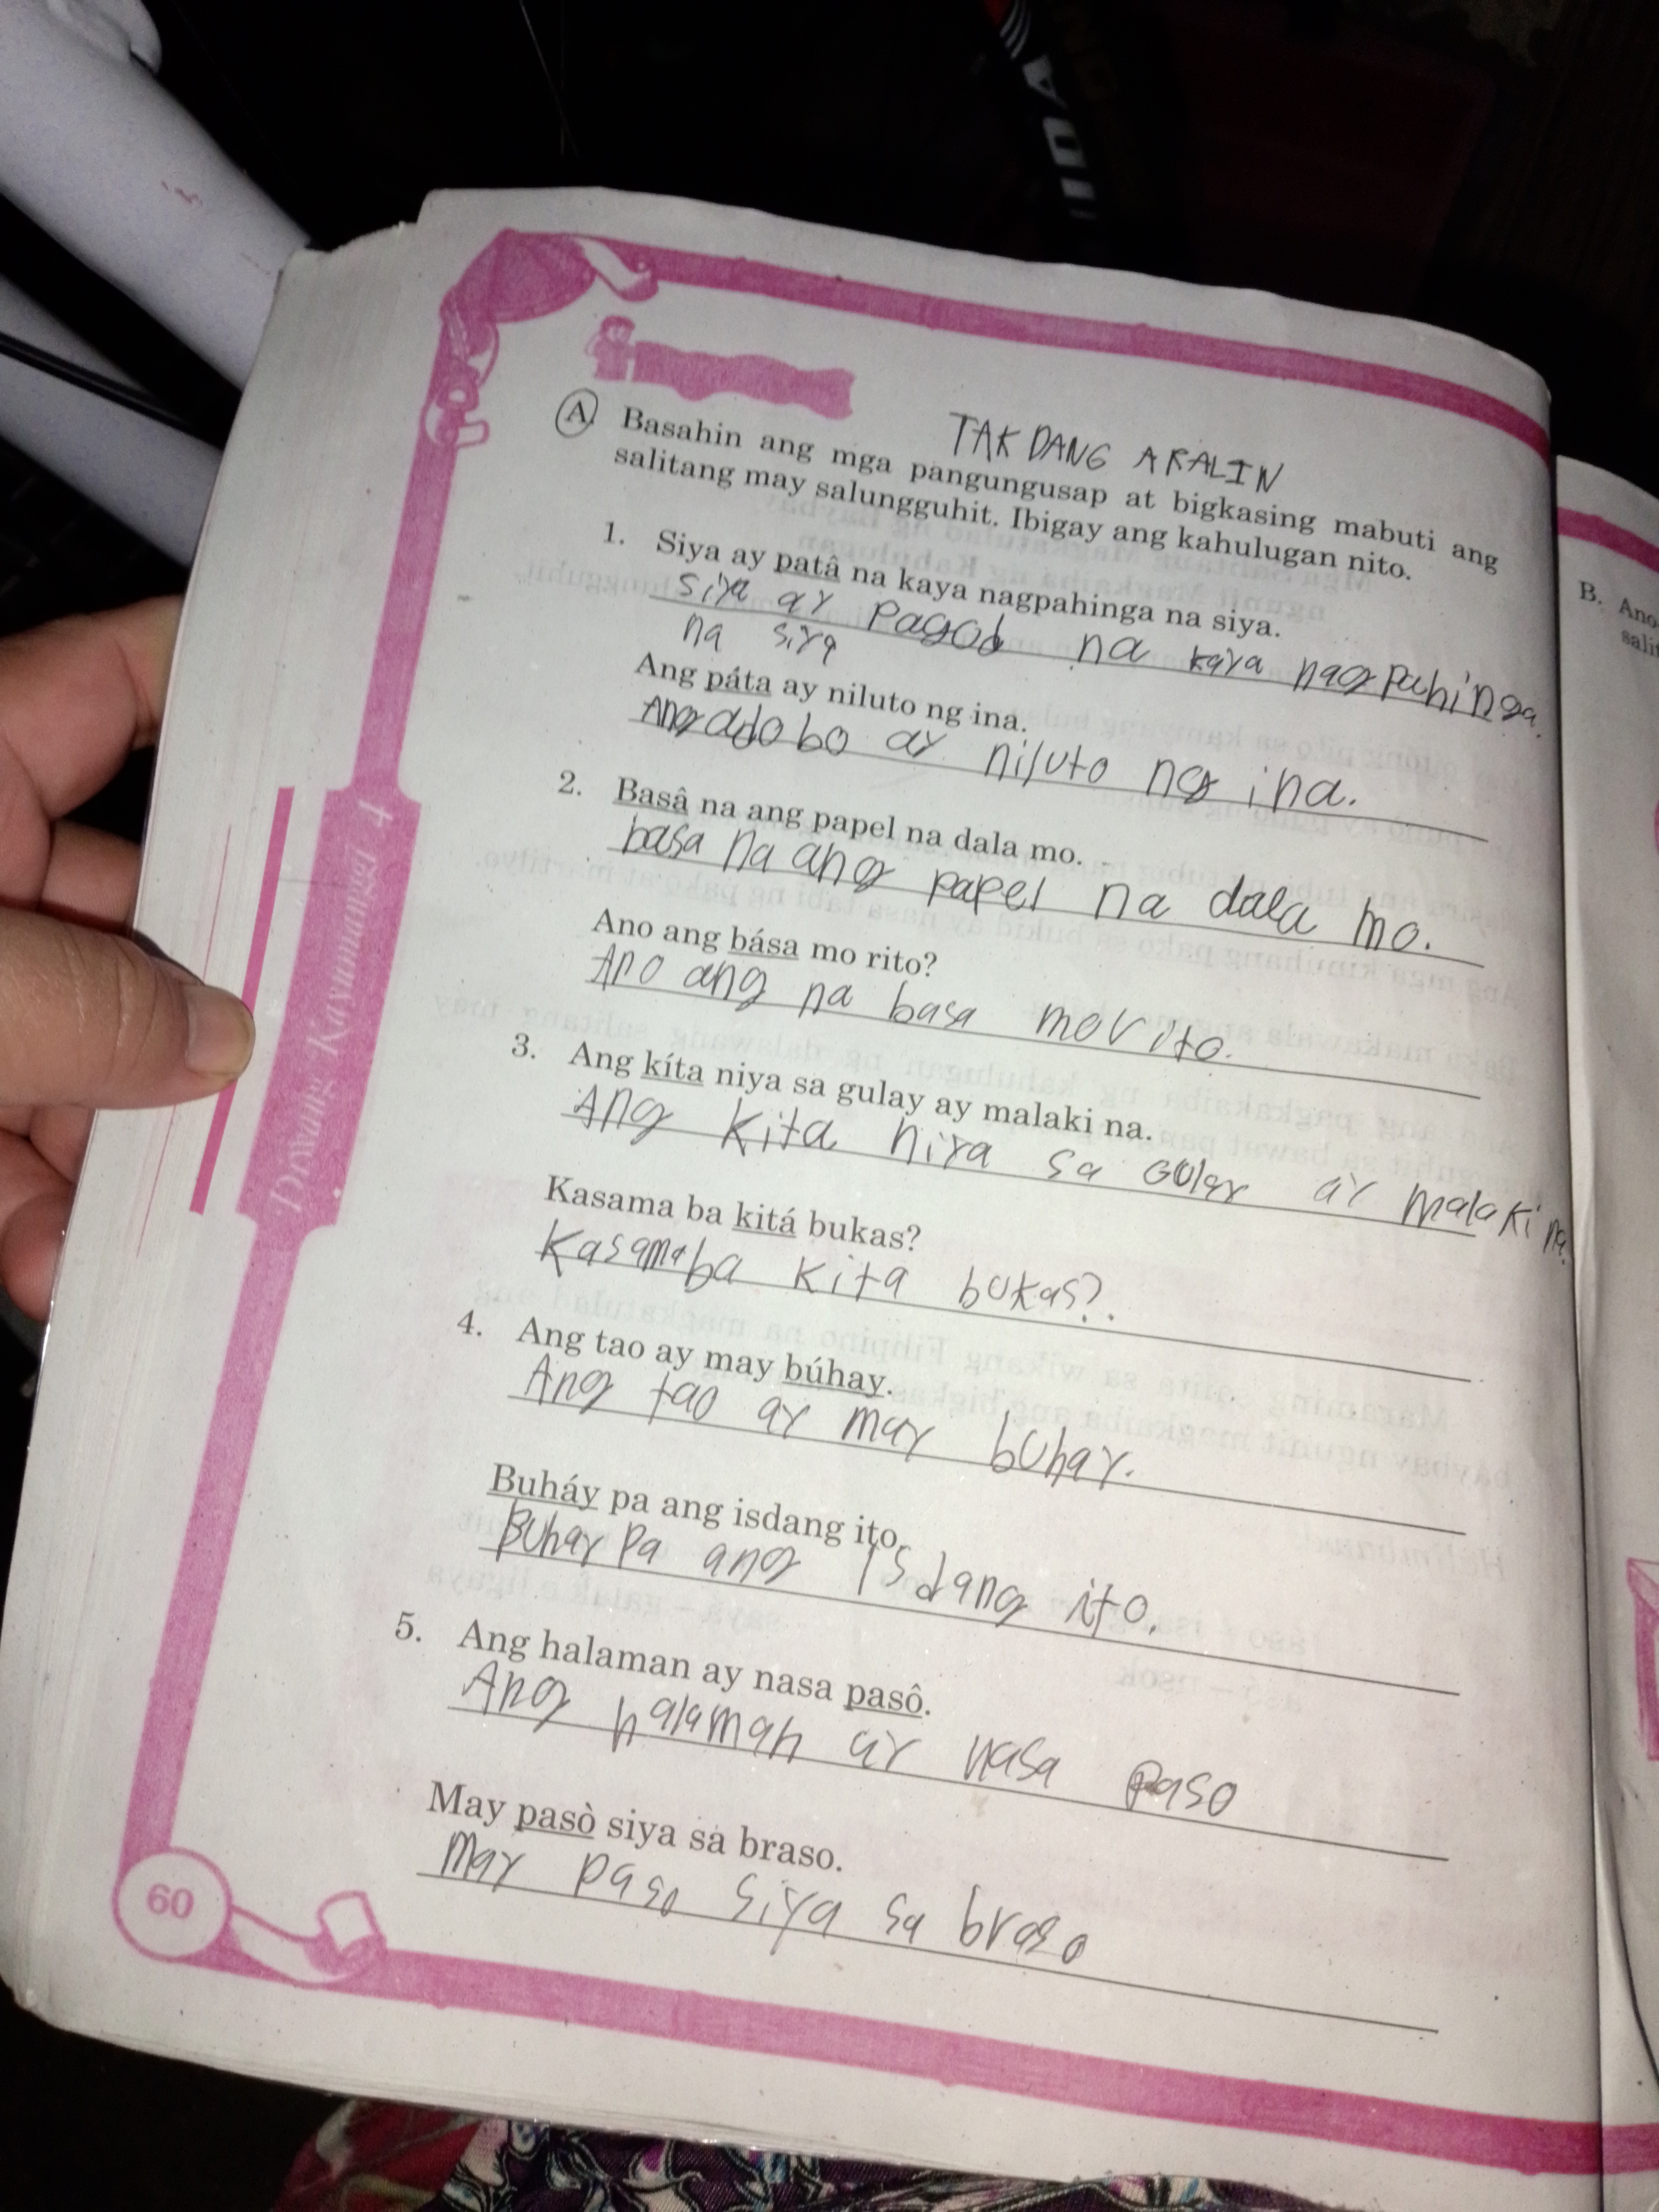 TAKDANG ARALIN
A. Basahin ang mga pangungusap at bigkasing mabuti ang
salitang may salungguhit. Ibigay ang kahulugan nito.
1. Siya ay patâ na kaya nagpahinga na siya.
siya ay pagod na kaya nagpahinga
na siya
Ang páta ay niluto ng ina.
Ang adobo ay niluto ng ina.
2. Basâ na ang papel na dala mo.
basa na ang papel na dala mo.
Ano ang bása mo rito?
Ano ang na basa morito.
3. Ang kíta niya sa gulay ay malaki na.
Ang kita niya sa gulay ay malaki na.
Kasama ba kitá bukas?
Kasama ba kita bukas?.
4. Ang tao ay may búhay.
Ang tao ay may buhay.
Buháy pa ang isdang ito.
Buhay pa ang isdang ito.
5. Ang halaman ay nasa pasô.
Ang halaman ay nasa paso
May pasò siya sa braso.
May paso siya sa braso
60
Diwang Kayumanggi
B. Ano
salit